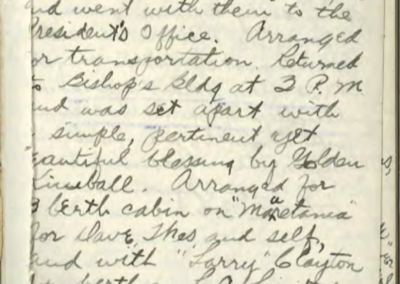 nd went with them to the
resident's Office. Arranged
or transportation. Returned
o Bishop's bldg at 3 P.M
nd was set apart with
simple, pertinent yet
eautiful blessing by Golden
Kimball. Arranged for
3 berth cabin on "Mauretania"
for Dave, Thos, and self,
and with "Larry" Clayton